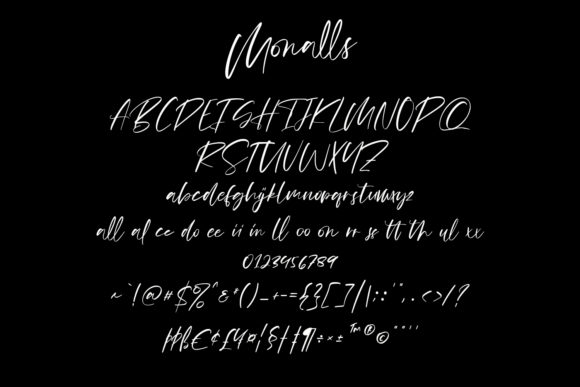 Monalls
ABCDEFGHIJKLMNOPQ
RSTUVWXYZ
abcdefghijklmnopqrstuvwxyz
all al ee do ee ii in ll oo on rr ss tt th ul xx
0123456789
~`!@#$%^&*()_+-={}[]/|:;'",.<>/?
€¢£¥¤¦§†‡¶÷×±™®©